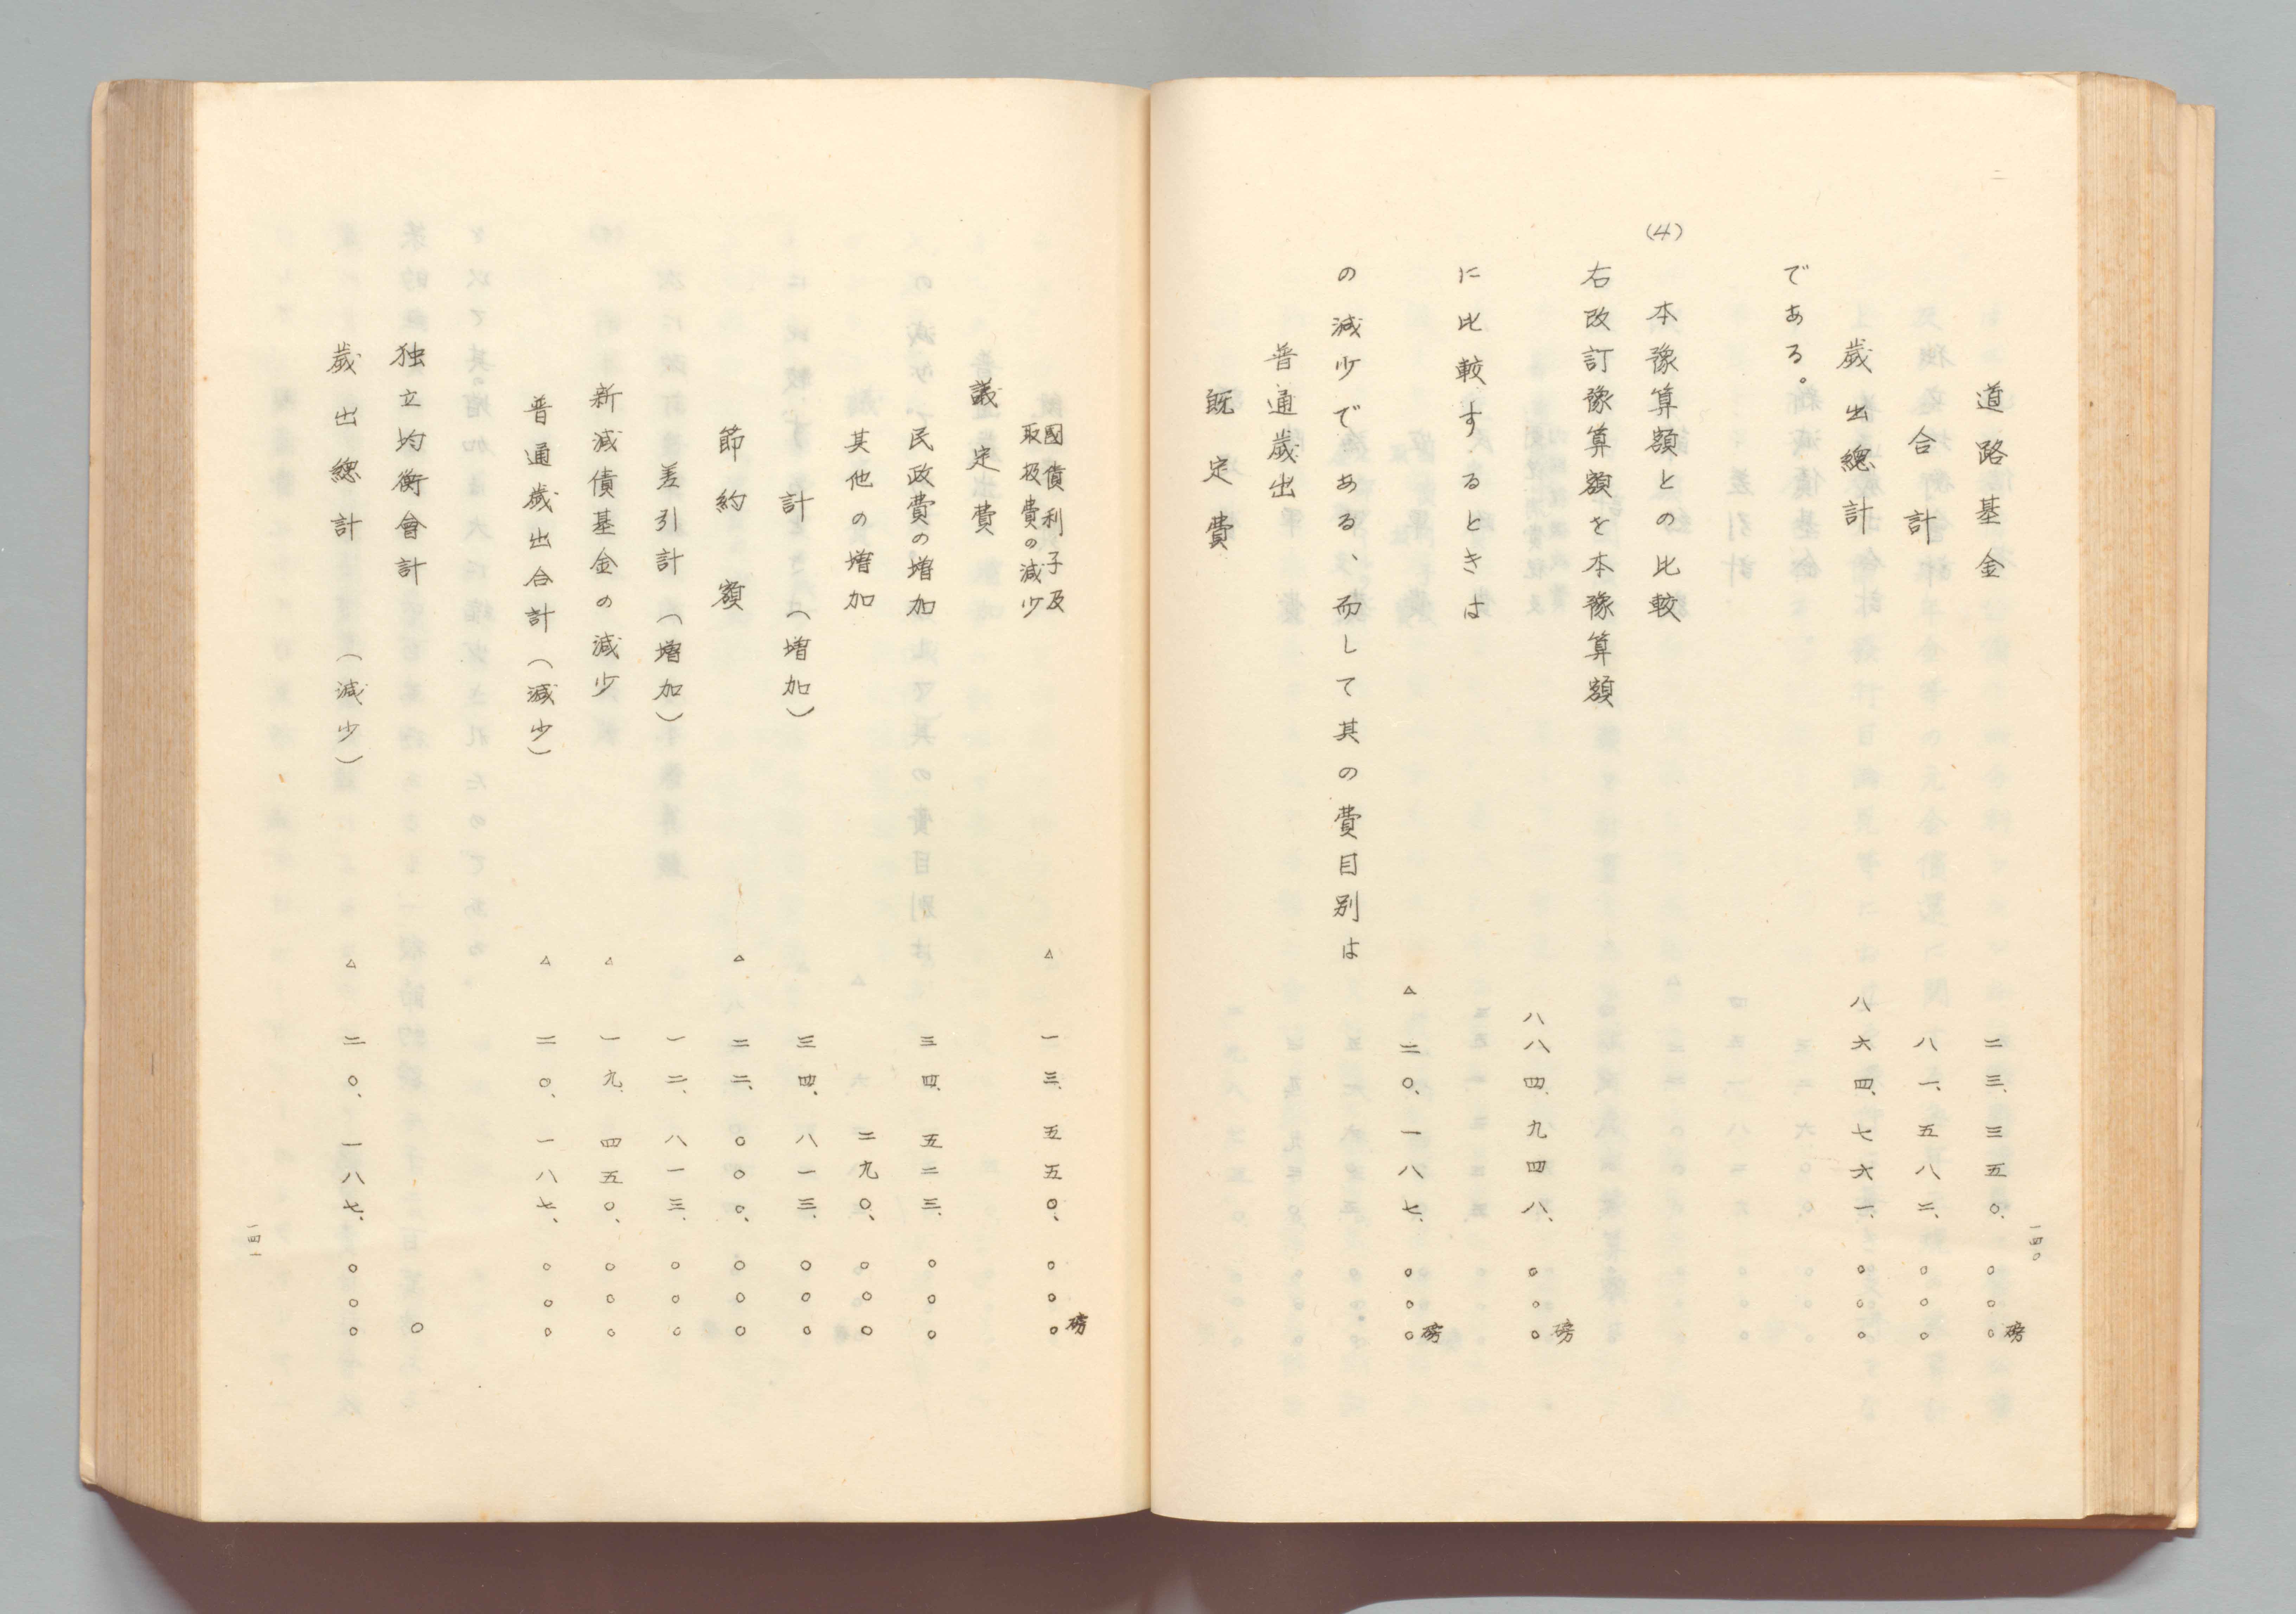 道路基金 二三、三五〇、〇〇〇磅
合計 八一、五八二、〇〇〇
歲出總計 八六四、七六一、〇〇〇
である。
(4) 本豫算額との比較
右改訂豫算額を本豫算額
八八四、九四八、〇〇〇磅
に比較するときは
△二〇、一八七、〇〇〇磅
の減少である、而して其の費目別は
普通歲出
既定費
一四〇
國債利子及
取扱費の減少 △一三、五五〇、〇〇〇磅
議定費
民政費の増加 三四、五二三、〇〇〇
其他の増加 二九〇、〇〇〇
計(増加) 三四、八一三、〇〇〇
節約額 △二二、〇〇〇、〇〇〇
差引計(増加) 一二、八一三、〇〇〇
新減債基金の減少 △一九、四五〇、〇〇〇
普通歲出合計(減少) △二〇、一八七、〇〇〇
独立均衡會計 〇
歲出總計(減少) △二〇、一八七、〇〇〇
一四一